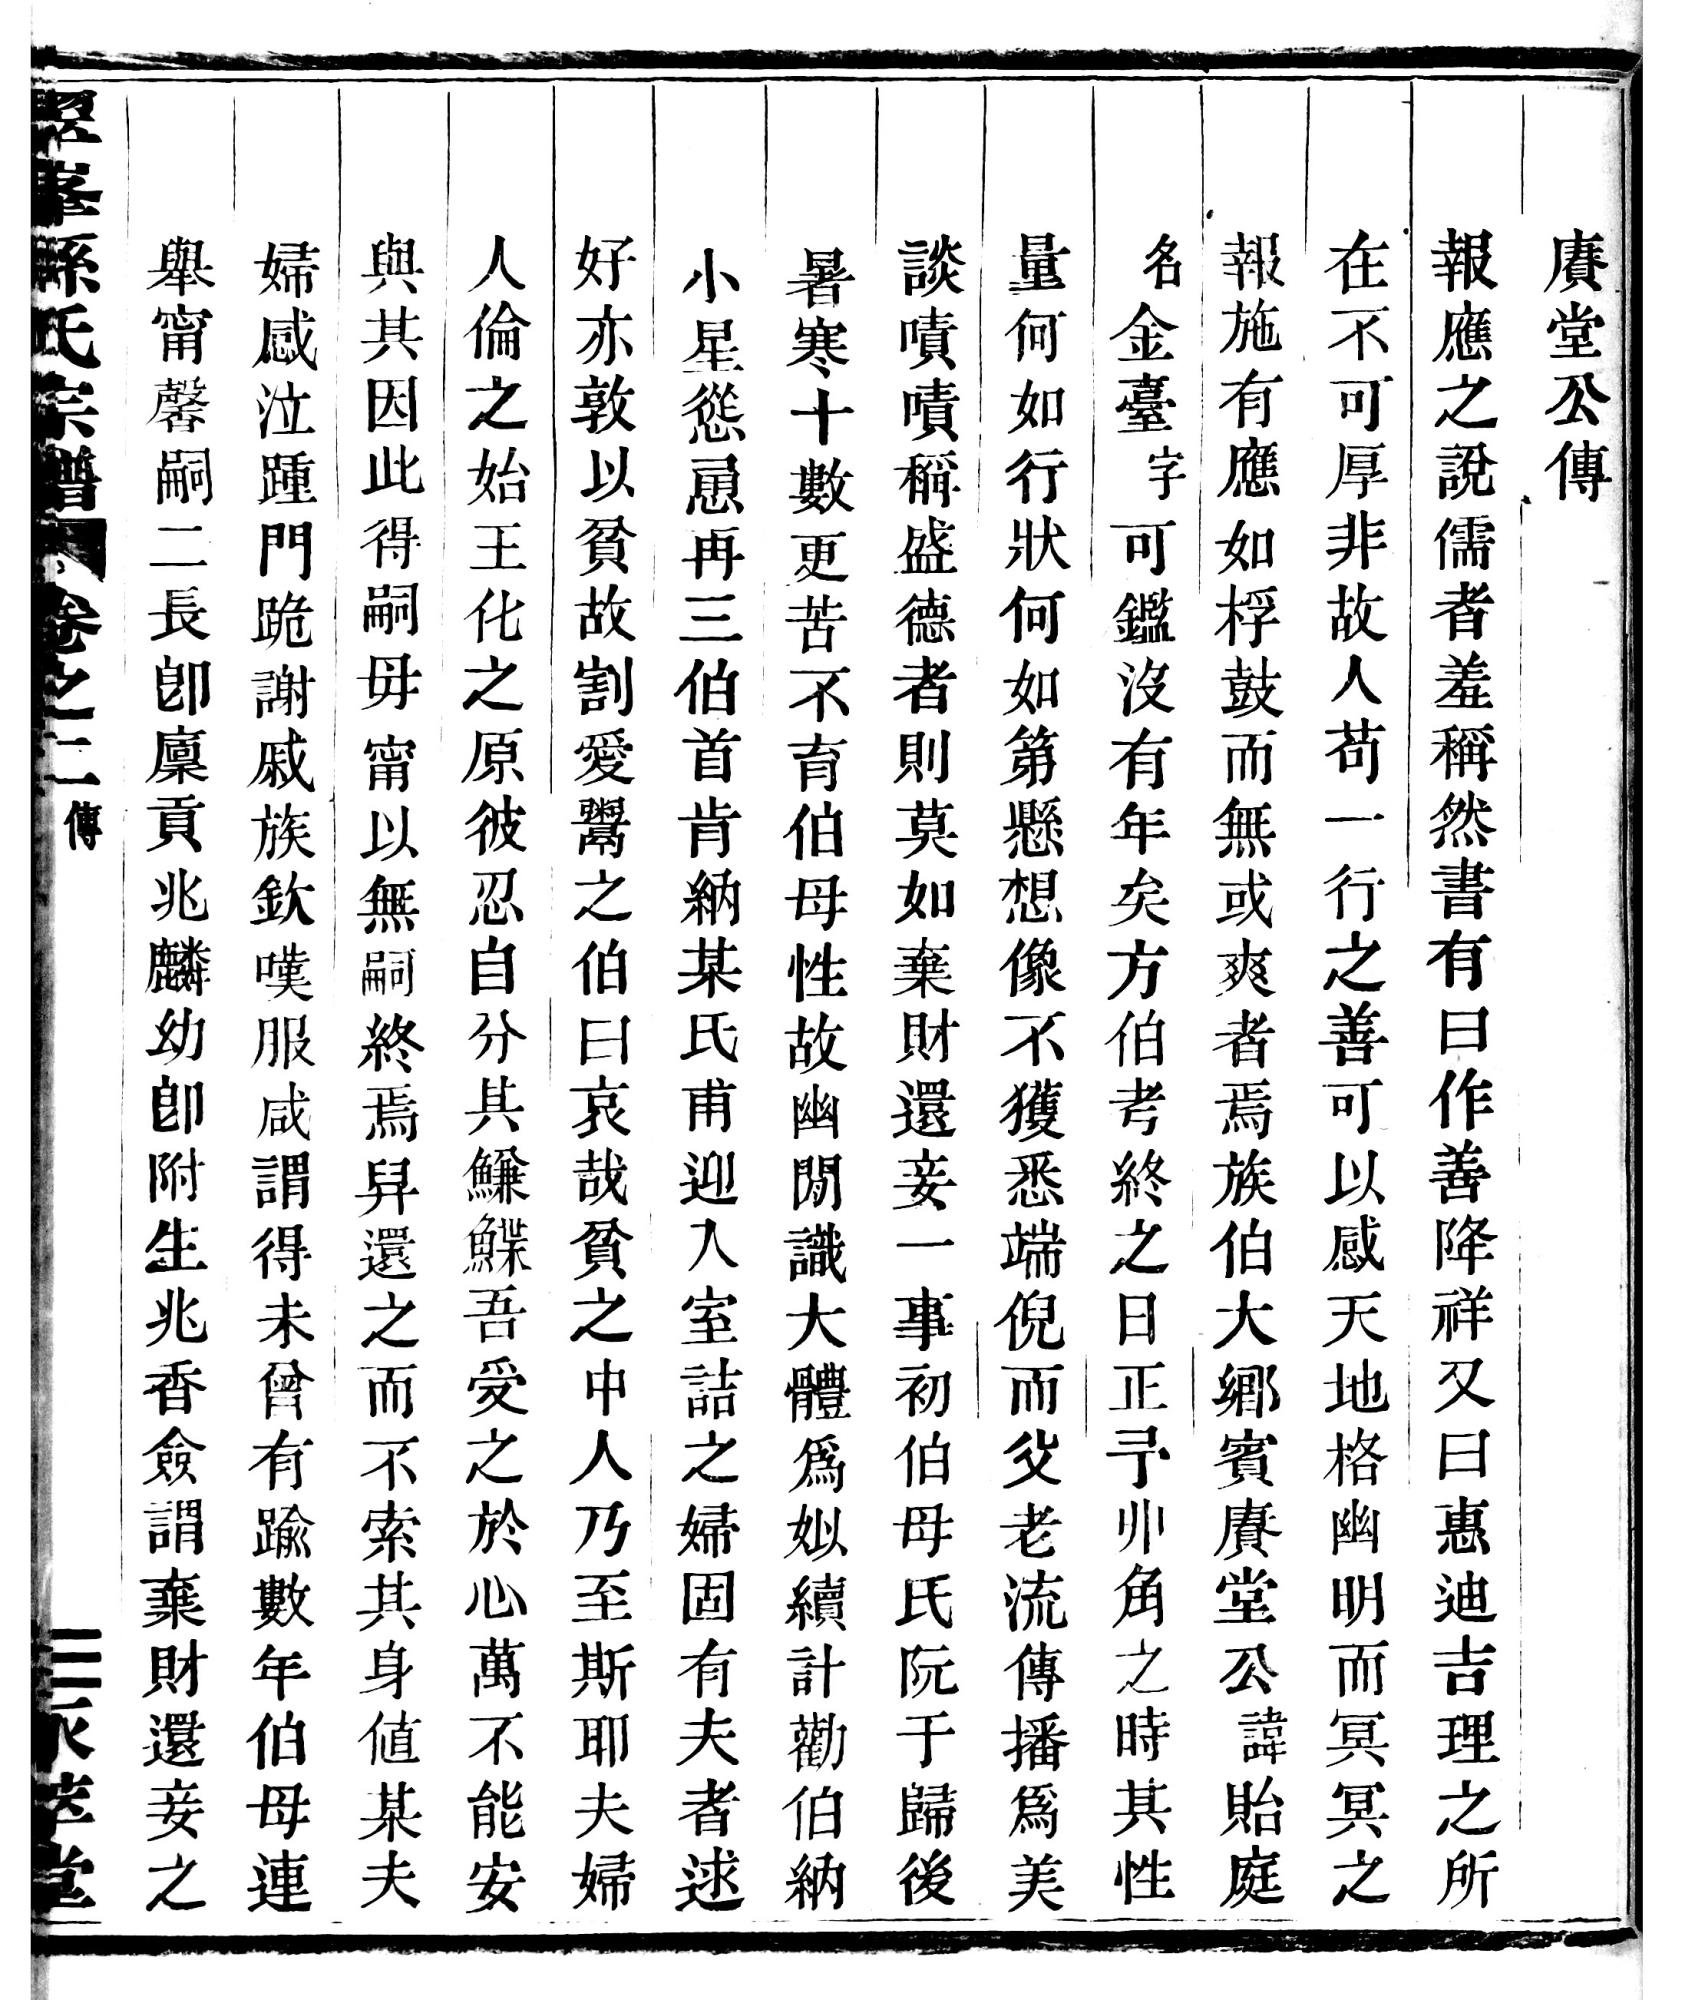 賡堂公傳
報應之說儒者羞稱然書有曰作善降祥又曰惠迪吉理之所
在不可厚非故人苟一行之善可以感天地格幽明而冥冥之
報施有應如桴鼓而無或爽者焉族伯大鄉賓賡堂公諱貽庭
名金臺字可鑑沒有年矣方伯考終之日正予丱角之時其性
量何如行狀何如第懸想像不獲悉端倪而父老流傳播爲美
談嘖嘖稱盛德者則莫如棄財還妾一事初伯母氏阮于歸後
暑寒十數更苦不育伯母性故幽閒識大體爲姒續計勸伯納
小星慫恿再三伯首肯納某氏甫迎入室詰之婦固有夫者逑
好亦敦以貧故割愛鬻之伯曰哀哉貧之中人乃至斯耶夫婦
人倫之始王化之原彼忍自分其鰜鰈吾受之於心萬不能安
與其因此得嗣毋甯以無嗣終焉舁還之而不索其身値某夫
婦感泣踵門跪謝戚族欽嘆服咸謂得未曾有踰數年伯母連
舉甯馨嗣二長卽廩貢兆麟幼卽附生兆香僉謂棄財還妾之
翠峯孫氏宗譜 卷之二 傳 三 永萃堂